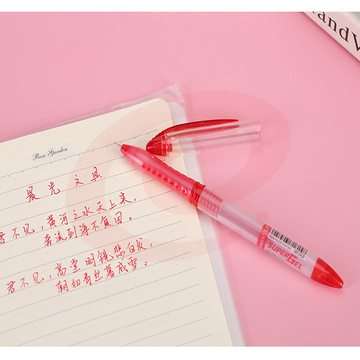 and Now I
Rose Garden
晨光文具
君不见,黄河之水天上来,
奔流到海不复回。
君不见,高堂明镜悲白发,
朝如青丝暮成雪。
SUPER GEL